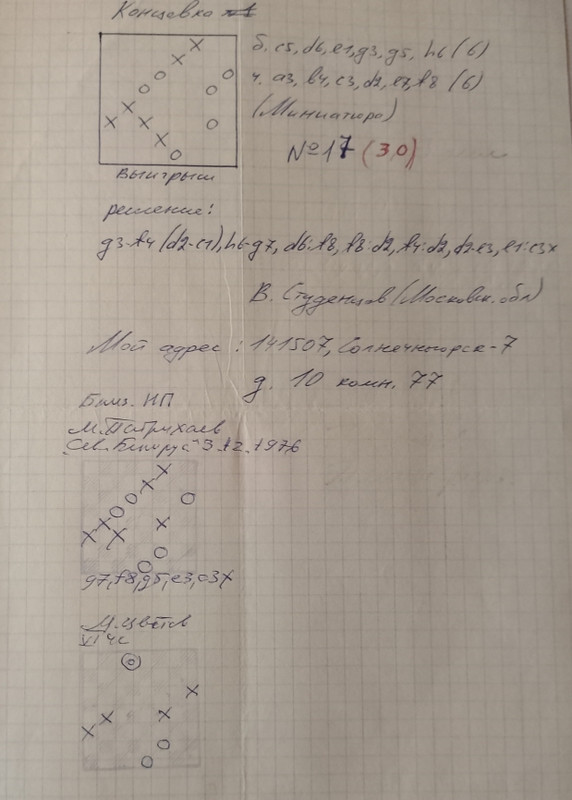 Концовка
б. c5, d6, e1, g3, g5, h6 (6)
ч. a3, b4, c3, d2, e7, f8 (6)
(Миниатюра)
№ 17 (3,0)
Выигрыш
решение:
g3-f4 (d2-c1), h6-g7, d6:f8, f8:d2, f4:d2, d2-e3, e1:c3x
В. Студенцов (Московск. обл)
Мой адрес: 141507, Солнечногорск-7
д. 10 комн. 77
Близ. ИП
g7, f8, g5, e3, c3x
М. Цветов
VI чс